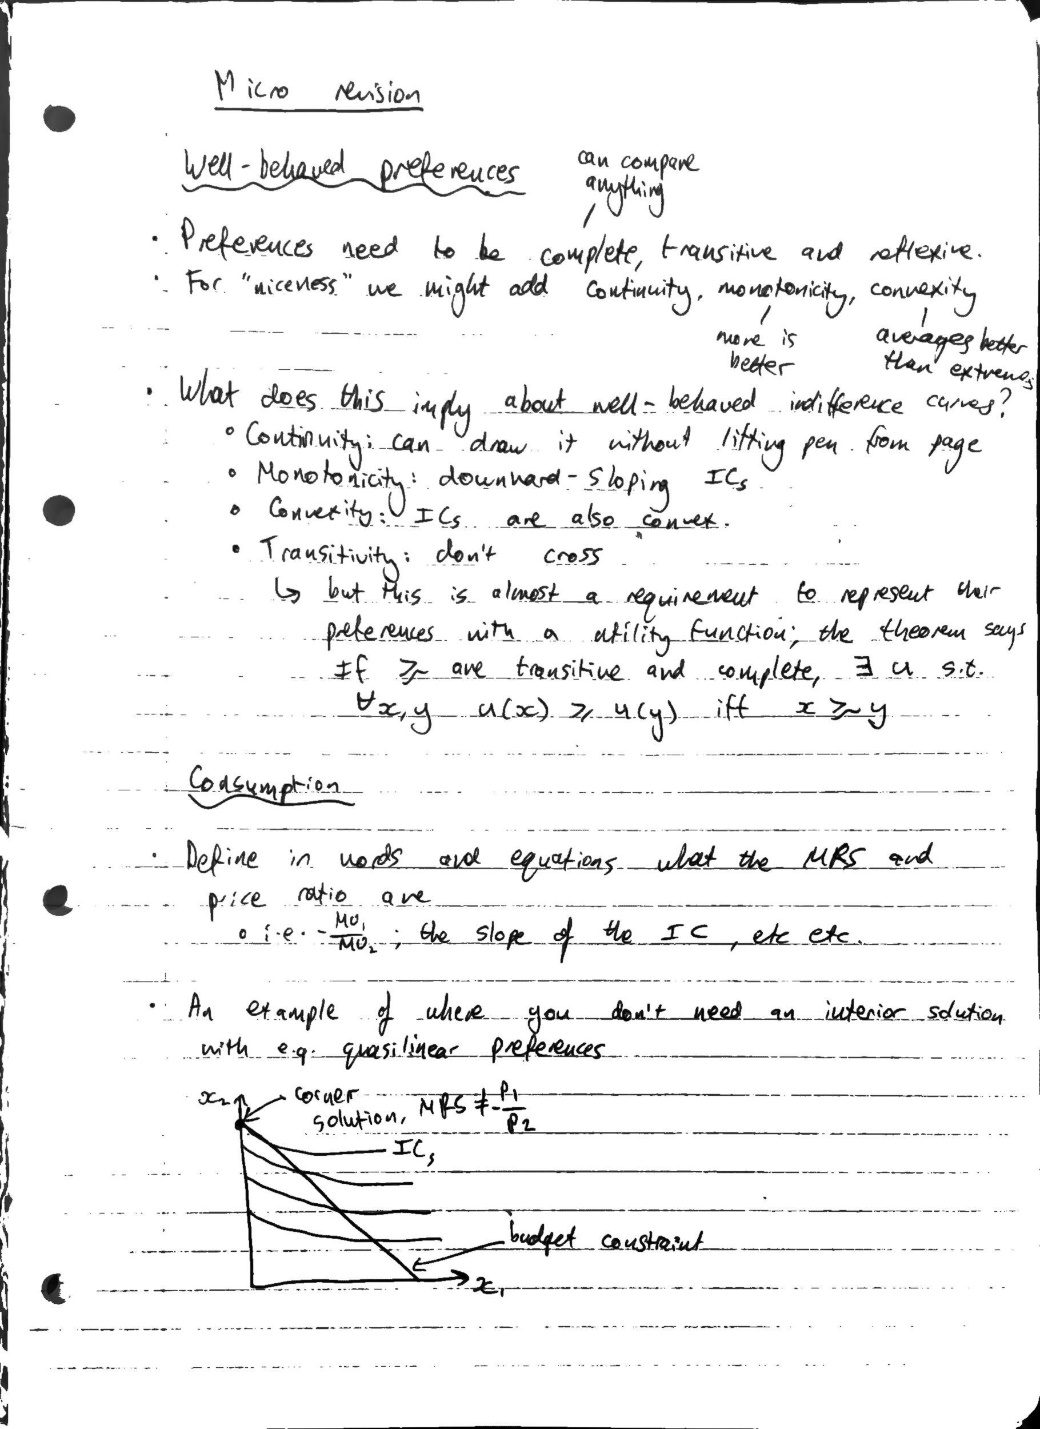 Micro revision
Well-behaved preferences
can compare
anything
• Preferences need to be complete, transitive and reflexive.
• For "niceness" we might add continuity, monotonicity, convexity
more is
better
averages better
than extremes
• What does this imply about well-behaved indifference curves?
◦ Continuity: can draw it without lifting pen from page
◦ Monotonicity: downward-sloping ICs
◦ Convexity: ICs are also convex.
◦ Transitivity: don't cross
↳ but this is almost a requirement to represent their
preferences with a utility function; the theorem says
If ≿ are transitive and complete, ∃ u s.t.
∀x,y u(x) ≥ u(y) iff x ≿ y
Consumption
• Define in words and equations what the MRS and
price ratio are
◦ i.e. -MU₁/MU₂; the slope of the IC, etc etc.
• An example of where you don't need an interior solution
with e.g. quasilinear preferences
x₂
corner
solution, MRS ≠ -P₁/P₂
ICs
budget constraint
x₁